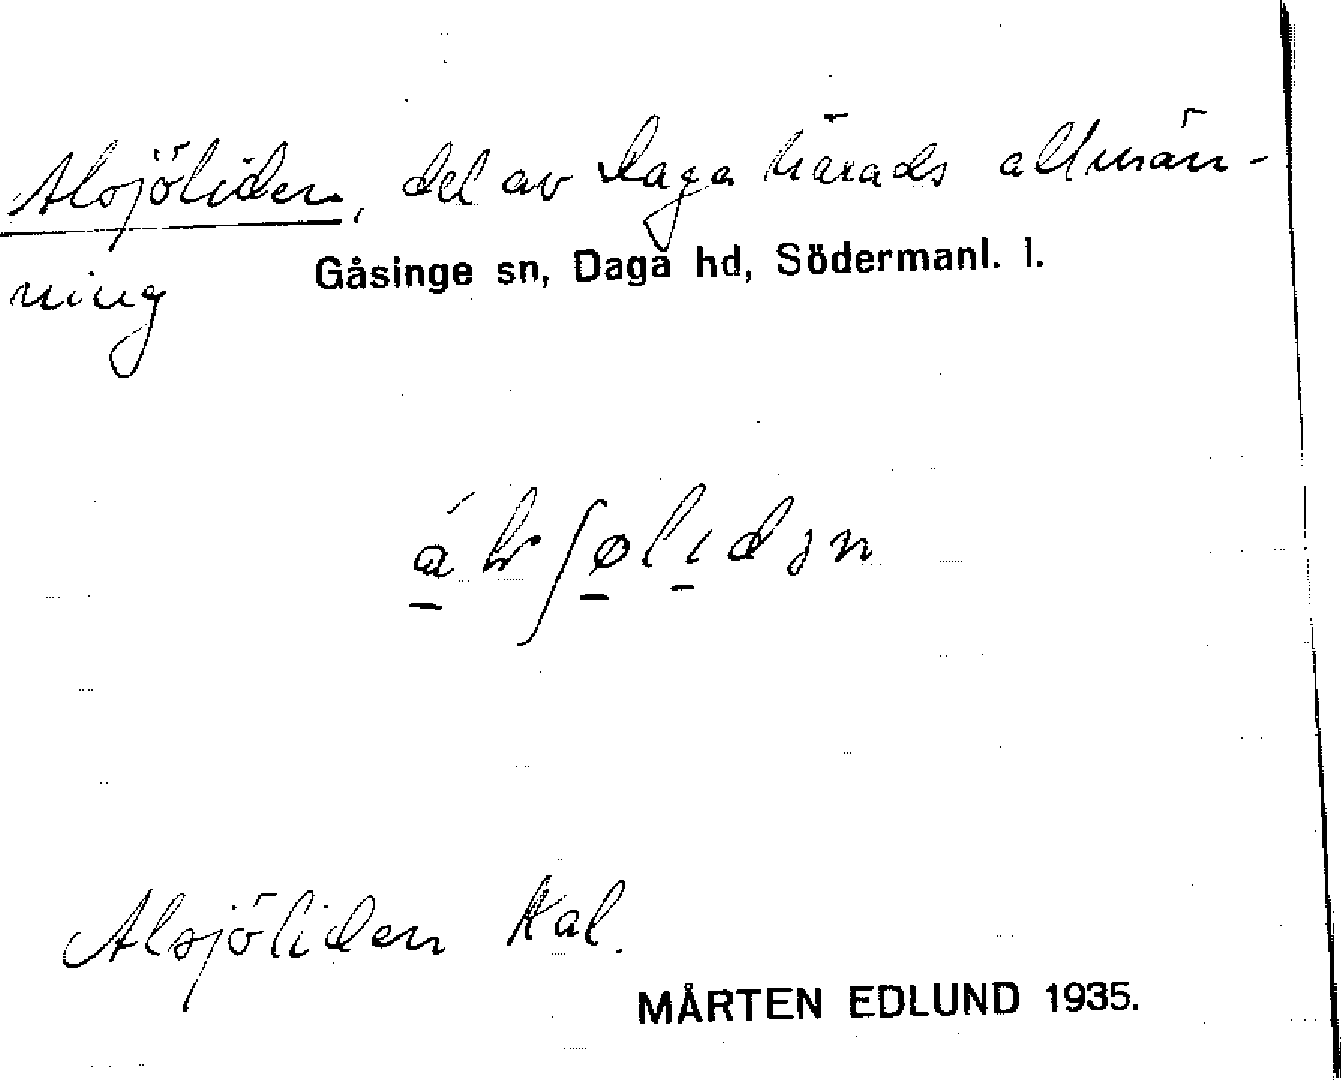 Alsjöliden, del av Daga härads allmän-
Gåsinge sn, Daga hd, Södermanl. l.
ning
Alsjöliden Kal.
MÅRTEN EDLUND 1935.